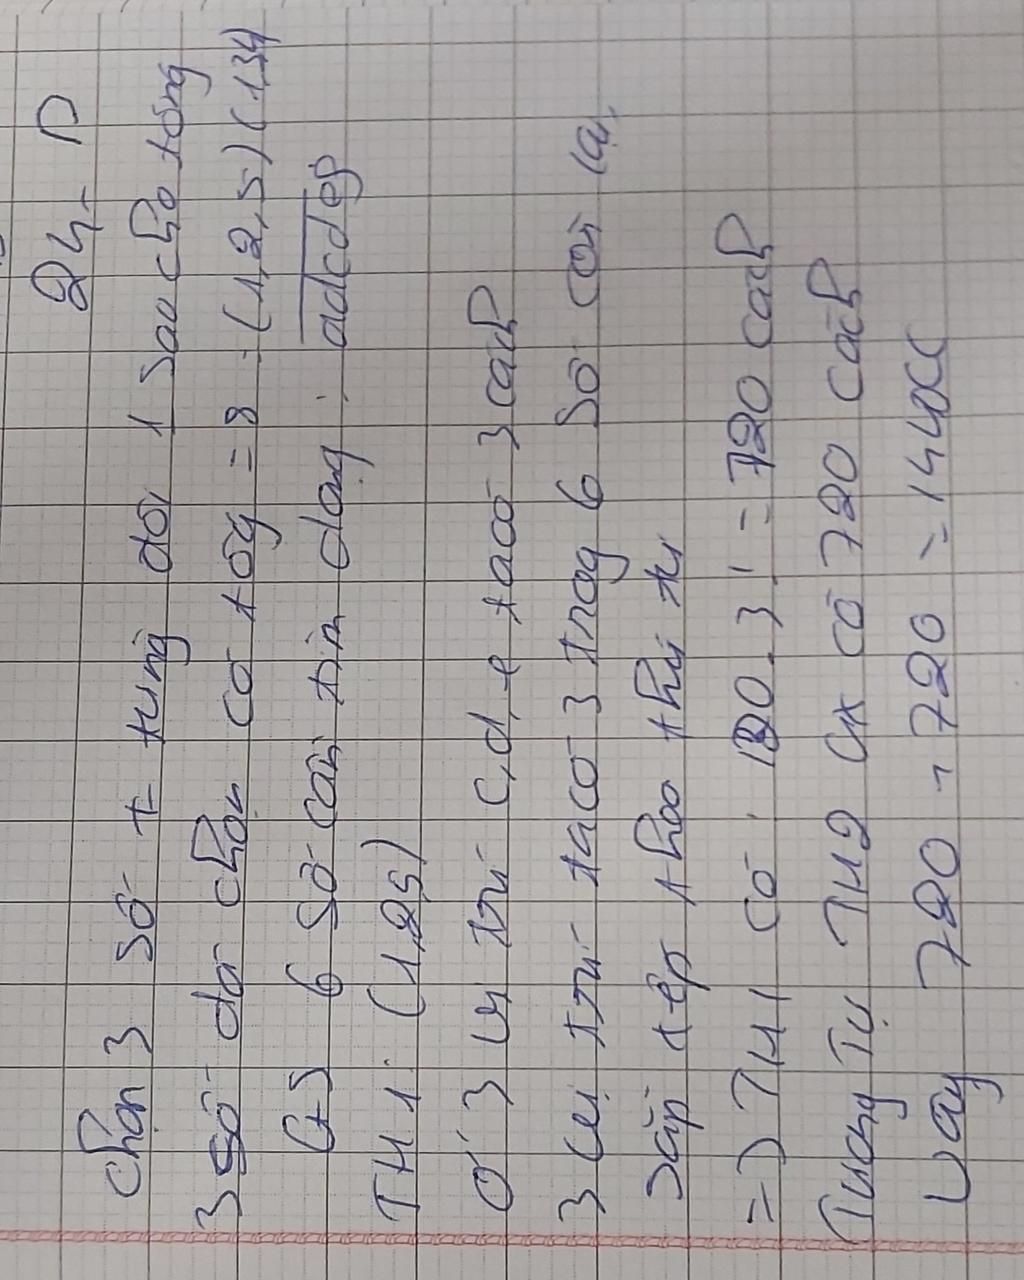 24. D
Chọn 3 số từ trung đôi 1 sau cho tổng
3 số đã chọn có tổg = 8 : (1,2,5) (134
(+) 6 số cần tìm dạng : abcdeg
TH1: (1,25)
Ở 3 vị trí c,d,e ta có 3 cách
3 vị trí ta có 3 trog 6 số còn lại,
sắp xếp theo thứ tự
=> TH1 có : 120.3! = 720 cách
Tương Tự TH2 cx có 720 cách
Vậy 720 + 720 = 1440C